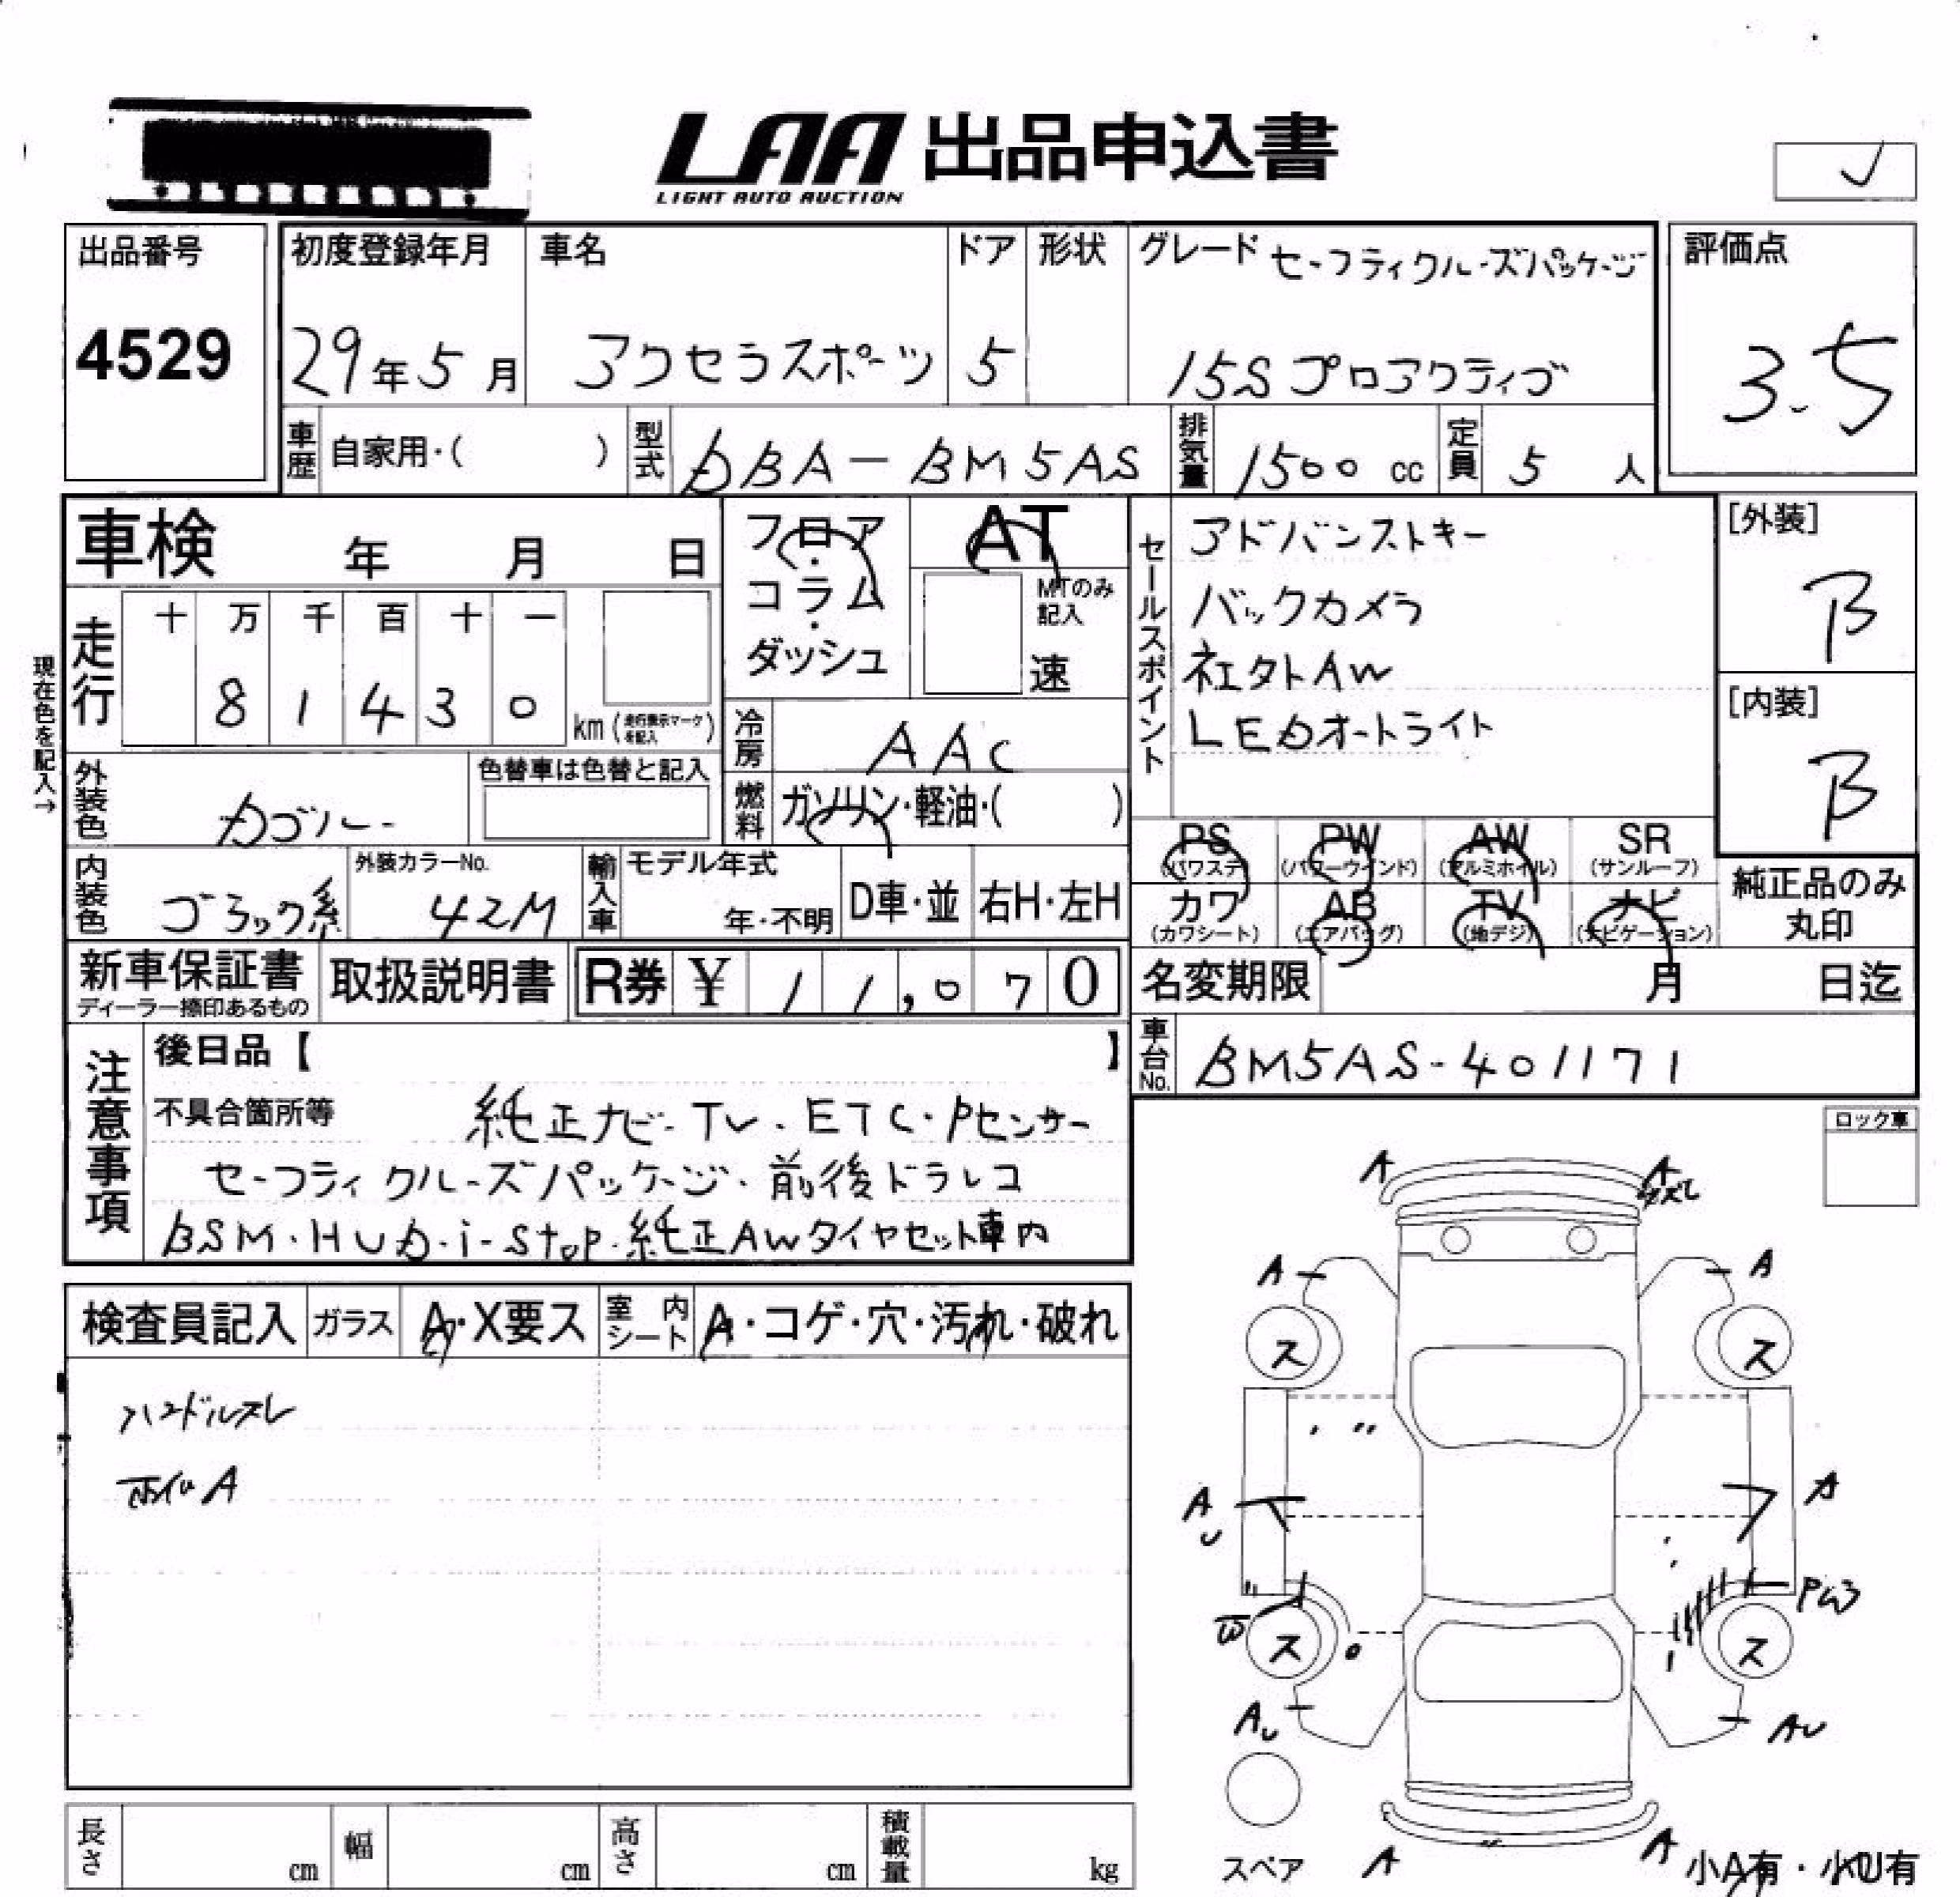 LAA 出品申込書
LIGHT AUTO AUCTION
出品番号
4529
初度登録年月
29年5月
車名
アクセラスポーツ
ドア
5
形状
グレード セーフティクルーズパッケージ
15Sプロアクティブ
評価点
3.5
車歴 自家用・( )
型式 DBA-BM5AS
排気量 1500 cc
定員 5 人
車検 年 月 日
フロア・コラム・ダッシュ
AT
MTのみ記入
速
走行
十 万 千 百 十 一
8 1 4 3 0
km(走行表示マークを記入)
現在色を記入→
冷房 AAC
燃料 ガソリン・軽油・( )
外装色
色替車は色替と記入
内装色 ブラック系
外装カラーNo. 42M
輸入車
モデル年式
年・不明
D車・並
右H・左H
セールスポイント
アドバンストキー
バックカメラ
社外AW
LEDオートライト
[外装]
B
[内装]
B
PS (パワステ)
PW (パワーウインド)
AW (アルミホイル)
SR (サンルーフ)
カワ (カワシート)
AB (エアバッグ)
TV (地デジ)
ナビ (ナビゲーション)
純正品のみ丸印
新車保証書
ディーラー捺印あるもの
取扱説明書
R券 ¥ 11,070
名変期限 月 日迄
車台No. BM5AS-401171
注意事項
後日品【 】
不具合箇所等 純正ナビ・TV・ETC・Pセンサー
セーフティクルーズパッケージ・前後ドラレコ
BSM・HUD・i-stop・純正AWタイヤセット車内
検査員記入
ガラス A・X要ス
室内シート A・コゲ・穴・汚れ・破れ
ハンドルスレ
ホイルA
ロック車
A
A
ズレ
A
A
ス
ス
AU
A
PW3
W
ス
ス
AU
AU
A
A
スペア
小A有・小U有
長さ cm
幅 cm
高さ cm
積載量 kg